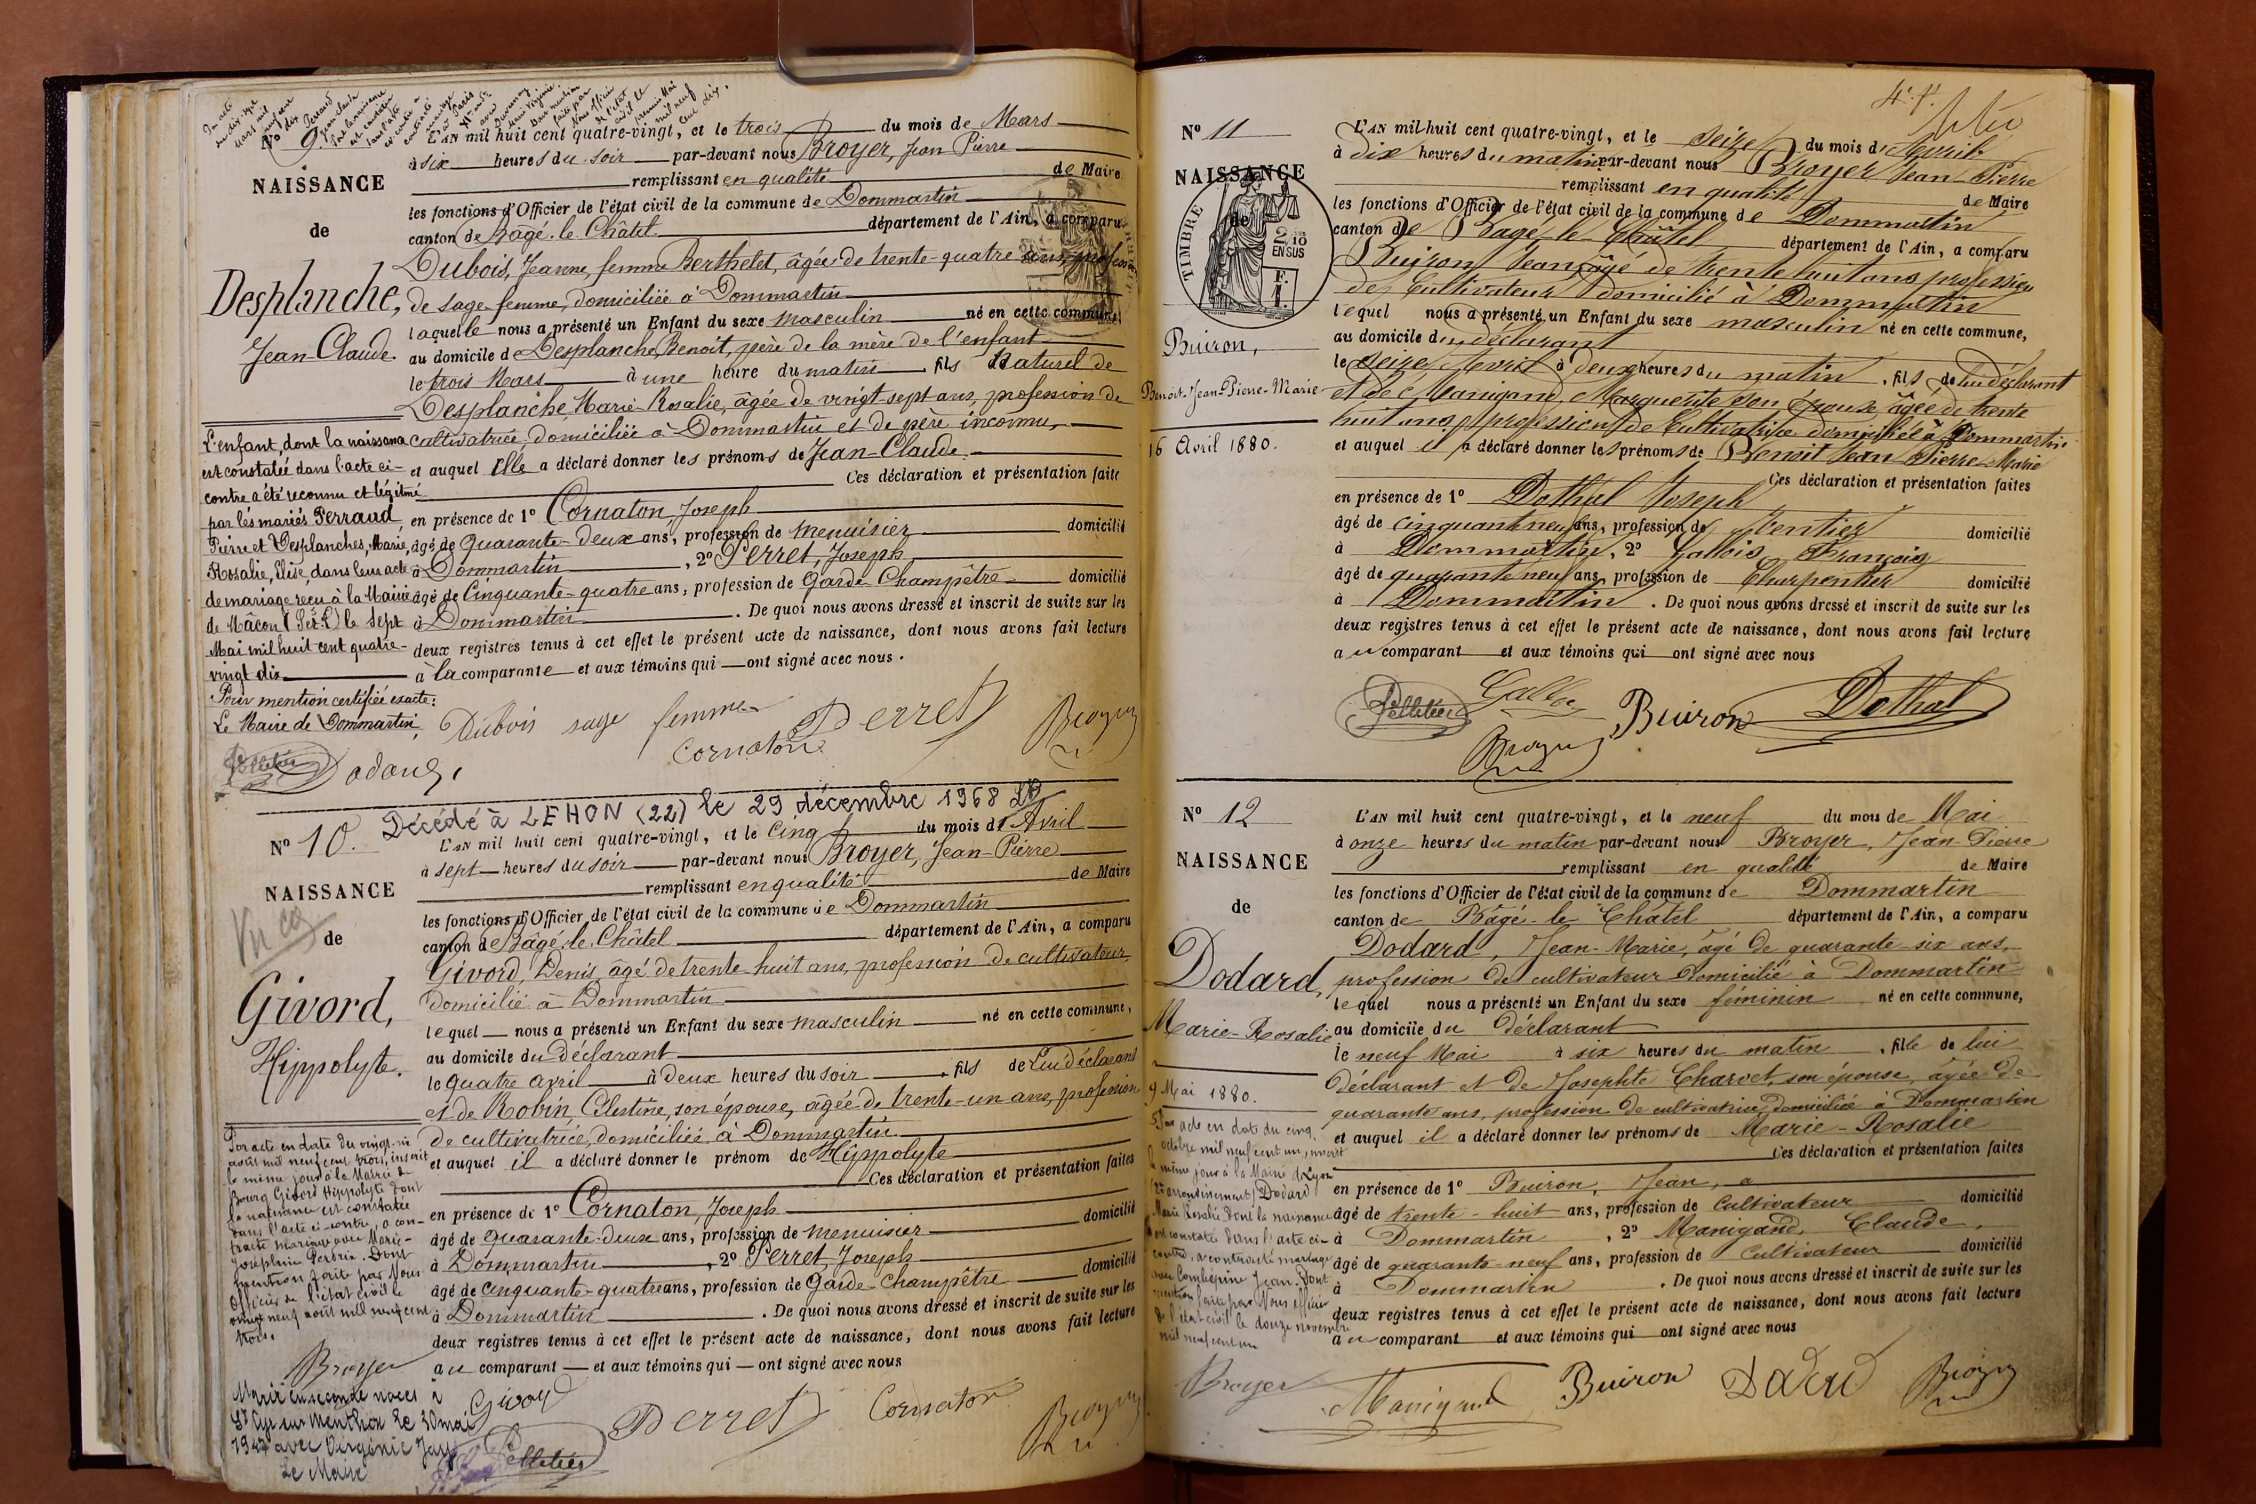 Nº 9.
L'AN mil huit cent quatre-vingt, et le trois du mois de Mars
à six heures du soir par-devant nous Broyer, Jean Pierre
remplissant en qualité de Maire
les fonctions d'Officier de l'état civil de la commune de Dommartin
canton de Bâgé-le-Châtel département de l'Ain, a comparu
Dubois, Jeanne, femme Berthelet, âgée de trente-quatre ans, profession
de sage-femme, domiciliée à Dommartin
laquelle nous a présenté un Enfant du sexe masculin né en cette commune,
au domicile de Desplanche, Benoît, père de la mère de l'enfant
le trois Mars à une heure du matin, fils naturel de
Desplanche, Marie-Rosalie, âgée de vingt-sept ans, profession de
cultivatrice, domiciliée à Dommartin et de père inconnu,
et auquel elle a déclaré donner les prénoms de Jean-Claude.
Ces déclaration et présentation faites
en présence de 1º Cornaton, Joseph
âgé de quarante-deux ans, profession de menuisier domicilié
à Dommartin, 2º Perret, Joseph
âgé de cinquante-quatre ans, profession de Garde-Champêtre domicilié
à Dommartin. De quoi nous avons dressé et inscrit de suite sur les
deux registres tenus à cet effet le présent acte de naissance, dont nous avons fait lecture
à la comparante et aux témoins qui ont signé avec nous.
NAISSANCE
de
Desplanche,
Jean-Claude.
L'enfant, dont la naissance
est constatée dans l'acte ci-
contre a été reconnu et légitimé
par les mariés Perraud
Pierre et Desplanches, Marie,
Rosalie, Elise, dans leur acte
de mariage reçu à la Mairie
de Mâcon (S.et.L) le sept
Mai mil huit cent quatre-
vingt dix
Pour mention certifiée exacte:
Le Maire de Dommartin,
Dubois sage femme
Perret
Cornaton
Broyer
Pelletier
Nº 10.
Décédé à LEHON (22) le 29 décembre 1968
L'AN mil huit cent quatre-vingt, et le cinq du mois d'Avril
à sept heures du soir par-devant nous Broyer, Jean-Pierre
remplissant en qualité de Maire
les fonctions d'Officier de l'état civil de la commune de Dommartin
canton de Bâgé-le-Châtel département de l'Ain, a comparu
Givord, Denis, âgé de trente-huit ans, profession de cultivateur,
domicilié à Dommartin
lequel nous a présenté un Enfant du sexe masculin né en cette commune,
au domicile du déclarant
le quatre avril à deux heures du soir, fils de lui déclarant
et de Robin, Célestine, son épouse, âgée de trente-un ans, profession
de cultivatrice, domiciliée à Dommartin
et auquel il a déclaré donner le prénom de Hippolyte
Ces déclaration et présentation faites
en présence de 1º Cornaton, Joseph
âgé de quarante-deux ans, profession de menuisier domicilié
à Dommartin, 2º Perret, Joseph
âgé de cinquante-quatre ans, profession de Garde-champêtre domicilié
à Dommartin. De quoi nous avons dressé et inscrit de suite sur les
deux registres tenus à cet effet le présent acte de naissance, dont nous avons fait lecture
au comparant et aux témoins qui ont signé avec nous
NAISSANCE
de
Givord,
Hippolyte.
Par acte en date du vingt-six
août mil neuf cent trois, inscrit
le même jour à la Mairie de
Bourg Givord Hippolyte dont
la naissance est constatée
dans l'acte ci-contre, a con-
tracté mariage avec Marie-
Joséphine. Dont
mention faite par Nous
Officier de l'état civil le
vingt neuf août mil neuf cent
trois.
Broyer
Marié en seconde noces à
St Cyr sur Menthon le 30 mai
avec Virgénie
Le Maire
Givord
Perret
Cornaton
Broyer
Pelletier
Nº 11
L'AN mil huit cent quatre-vingt, et le seize du mois d'Avril
à dix heures du matin par-devant nous Broyer Jean-Pierre
remplissant en qualité de Maire
les fonctions d'Officier de l'état civil de la commune de Dommartin
canton de Bagé-le-Châtel département de l'Ain, a comparu
Buiron Jean âgé de trente huit ans profession
de Cultivateur domicilié à Dommartin
lequel nous a présenté un Enfant du sexe masculin né en cette commune,
au domicile du déclarant
le seize Avril à deux heures du matin, fils de lui déclarant
et de Manigand, Marguerite son épouse âgée de trente
huit ans, profession de Cultivatrice domiciliée à Dommartin
et auquel il a déclaré donner les prénoms de Benoit Jean Pierre Marie
Ces déclaration et présentation faites
en présence de 1º Dothal Joseph
âgé de cinquante neuf ans, profession de Rentier domicilié
à Dommartin, 2º Gallois François
âgé de quarante neuf ans, profession de Charpentier domicilié
à Dommartin. De quoi nous avons dressé et inscrit de suite sur les
deux registres tenus à cet effet le présent acte de naissance, dont nous avons fait lecture
au comparant et aux témoins qui ont signé avec nous
NAISSANCE
de
TIMBRE
2/10
EN SUS
Buiron,
Benoit-Jean-Pierre-Marie
16 Avril 1880.
Pelletier
Buiron
Dothal
Broyer
Nº 12
L'AN mil huit cent quatre-vingt, et le neuf du mois de Mai
à onze heures du matin par-devant nous Broyer, Jean-Pierre
remplissant en qualité de Maire
les fonctions d'Officier de l'état civil de la commune de Dommartin
canton de Bâgé-le-Châtel département de l'Ain, a comparu
Dodard, Jean-Marie, âgé de quarante-six ans,
profession de cultivateur domicilié à Dommartin
lequel nous a présenté un Enfant du sexe féminin né en cette commune,
au domicile du déclarant
le neuf Mai à six heures du matin, fille de lui
déclarant et de Josephte Charvet, son épouse, âgée de
quarante ans, profession de cultivatrice, domiciliée à Dommartin
et auquel il a déclaré donner les prénoms de Marie-Rosalie
Ces déclaration et présentation faites
en présence de 1º Buiron, Jean,
âgé de trente-huit ans, profession de Cultivateur domicilié
à Dommartin, 2º Manigand, Claude,
âgé de quarante-neuf ans, profession de Cultivateur domicilié
à Dommartin. De quoi nous avons dressé et inscrit de suite sur les
deux registres tenus à cet effet le présent acte de naissance, dont nous avons fait lecture
au comparant et aux témoins qui ont signé avec nous
NAISSANCE
de
Dodard,
Marie-Rosalie
9 Mai 1880.
Par acte en date du cinq
octobre mil neuf cent un, inscrit
le même jour à la Mairie de Lyon
arrondissement Dodard
Marie Rosalie dont la naissance
est constatée dans l'acte ci-
contre, a contracté mariage
avec Combépine Jean. Dont
mention faite par Nous officier
de l'état civil le douze novembre
mil neuf cent un
Broyer
Manigand
Buiron
Dodard
Broyer